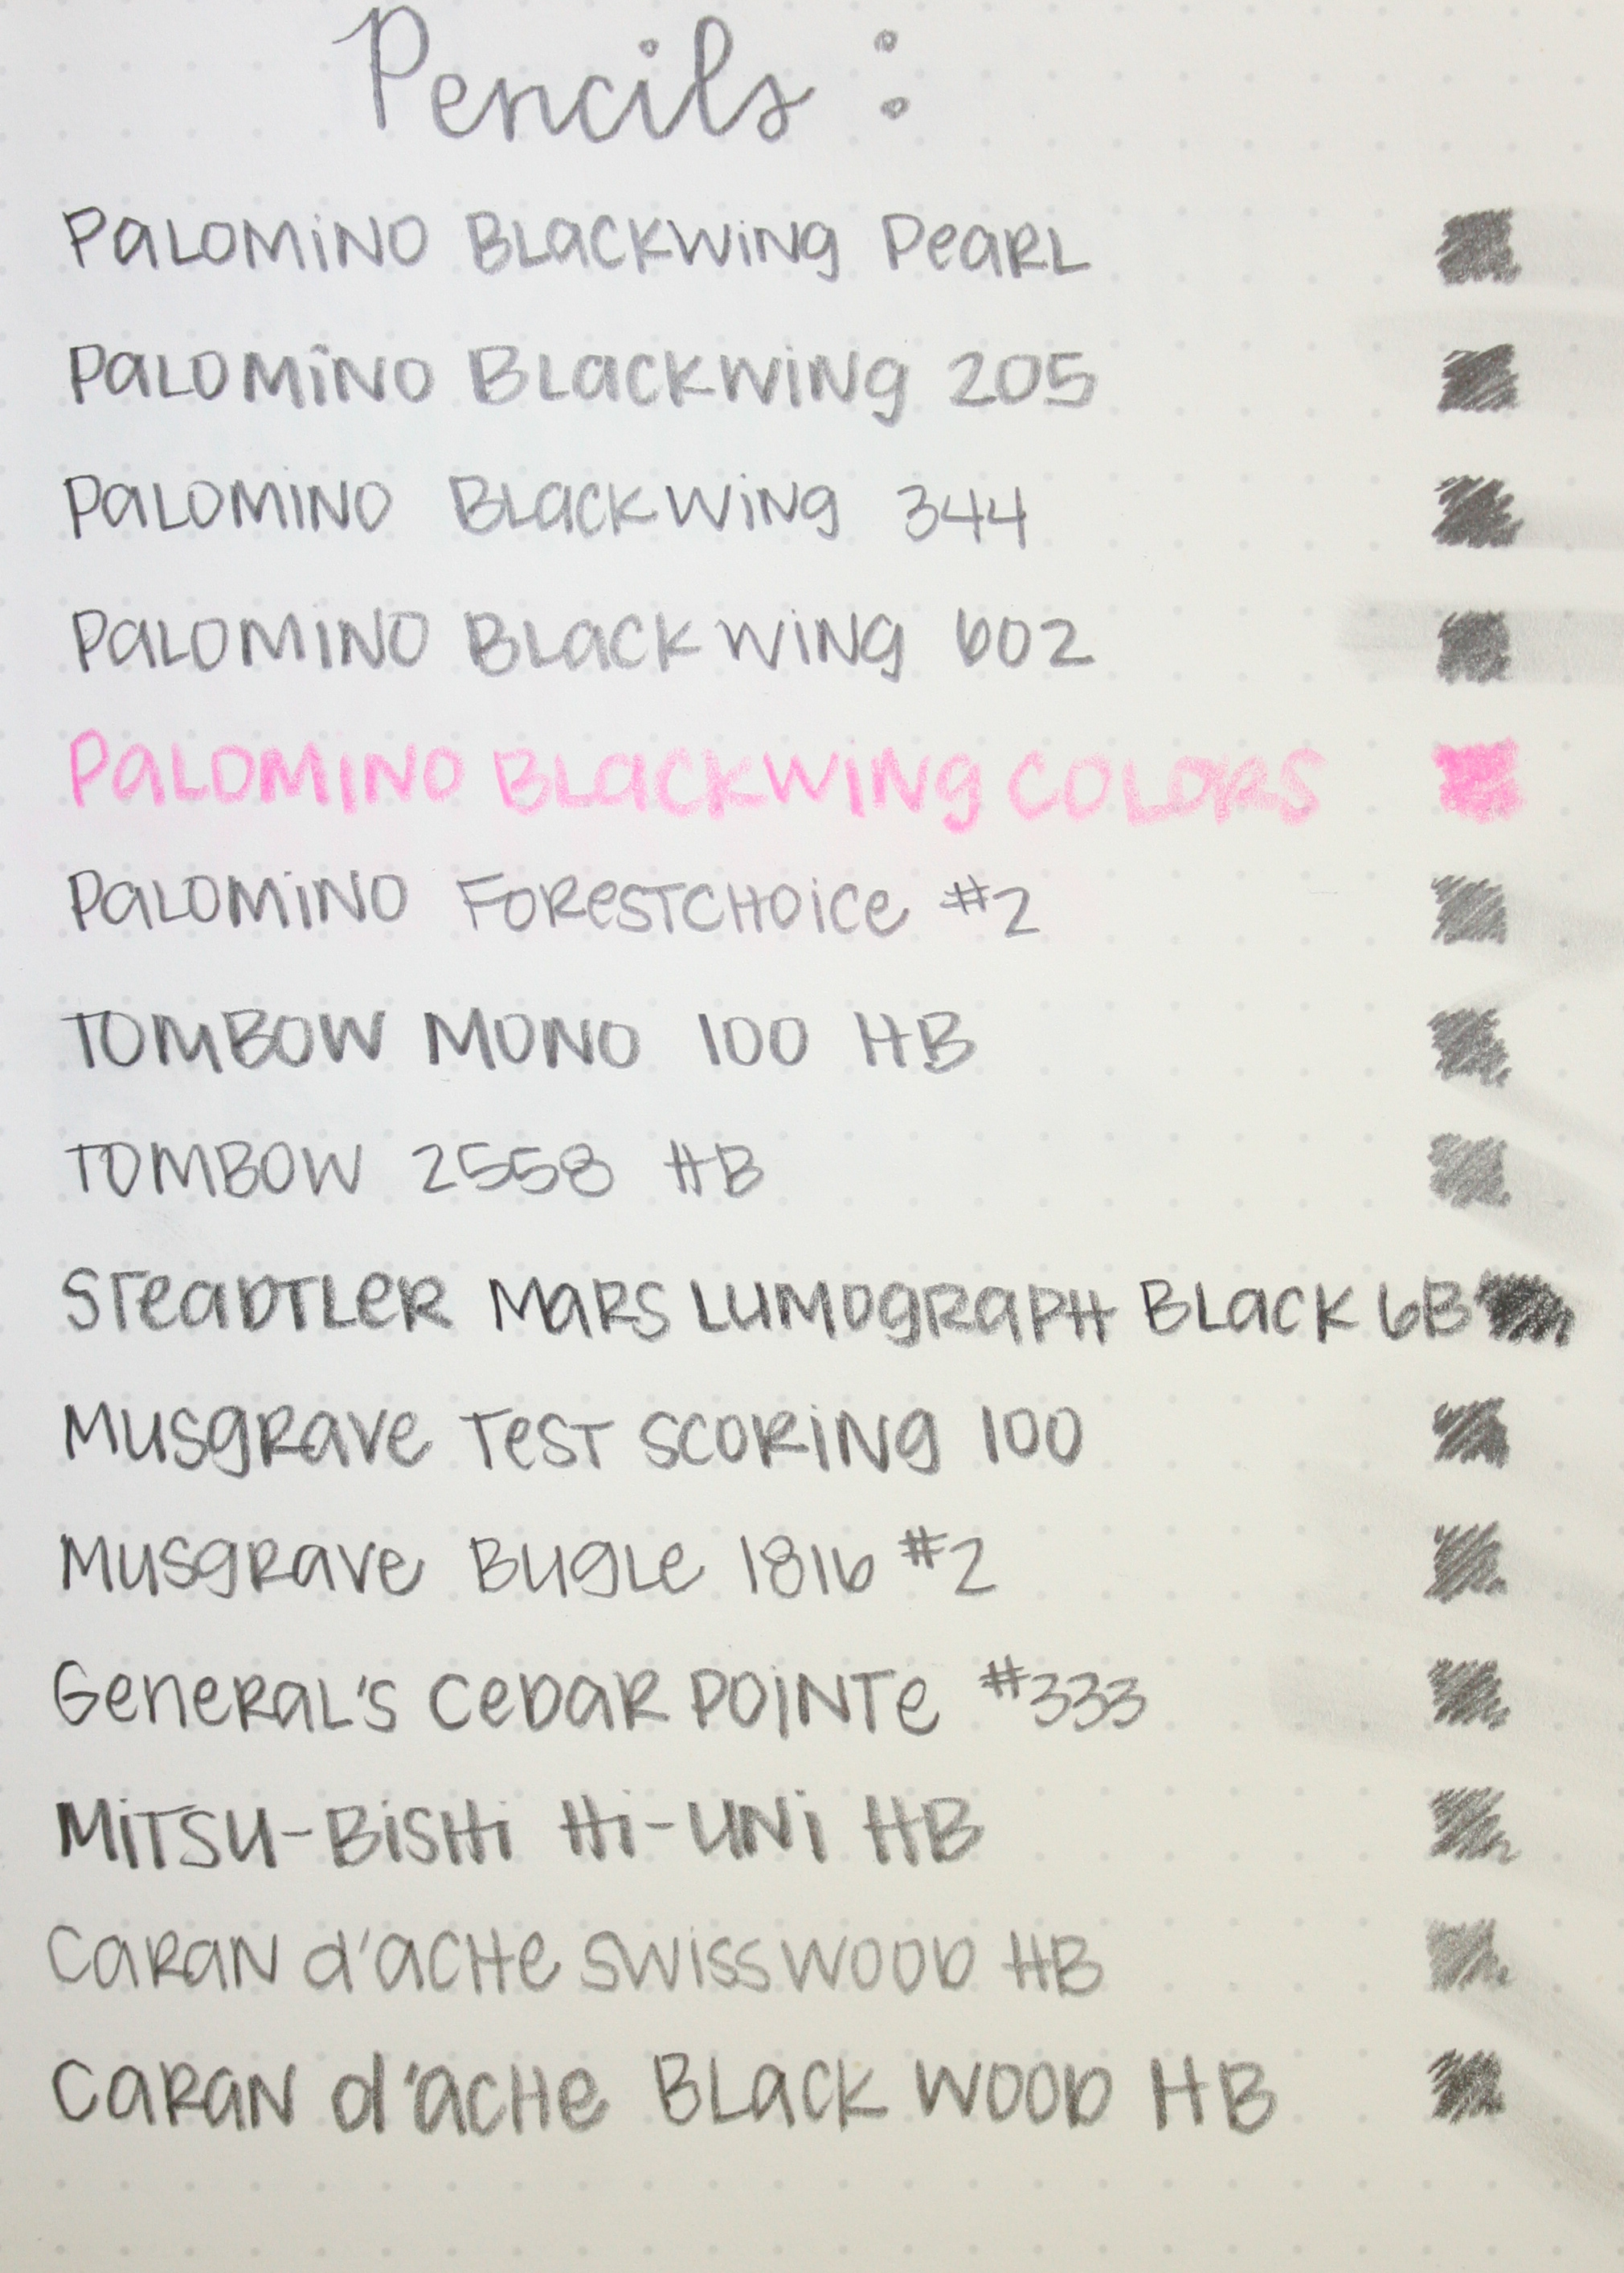 Pencils:
Palomino Blackwing Pearl
Palomino Blackwing 205
Palomino Blackwing 344
Palomino Blackwing 602
Palomino Blackwing Colors
Palomino ForestChoice #2
Tombow Mono 100 HB
Tombow 2558 HB
Steadtler Mars Lumograph Black 6B
Musgrave Test Scoring 100
Musgrave Bugle 1816 #2
General's Cedar Pointe #333
Mitsu-Bishi Hi-Uni HB
Caran d'ache Swisswood HB
Caran d'ache Black Wood HB